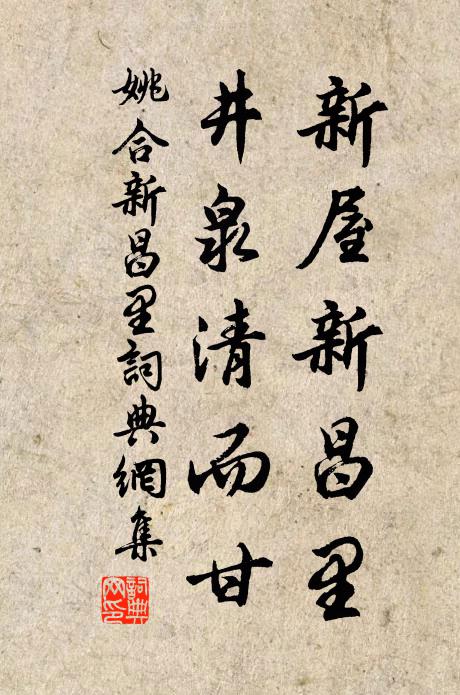 新屋新昌里
井泉清而甘
姚合新昌里詞典網集
詞典网印